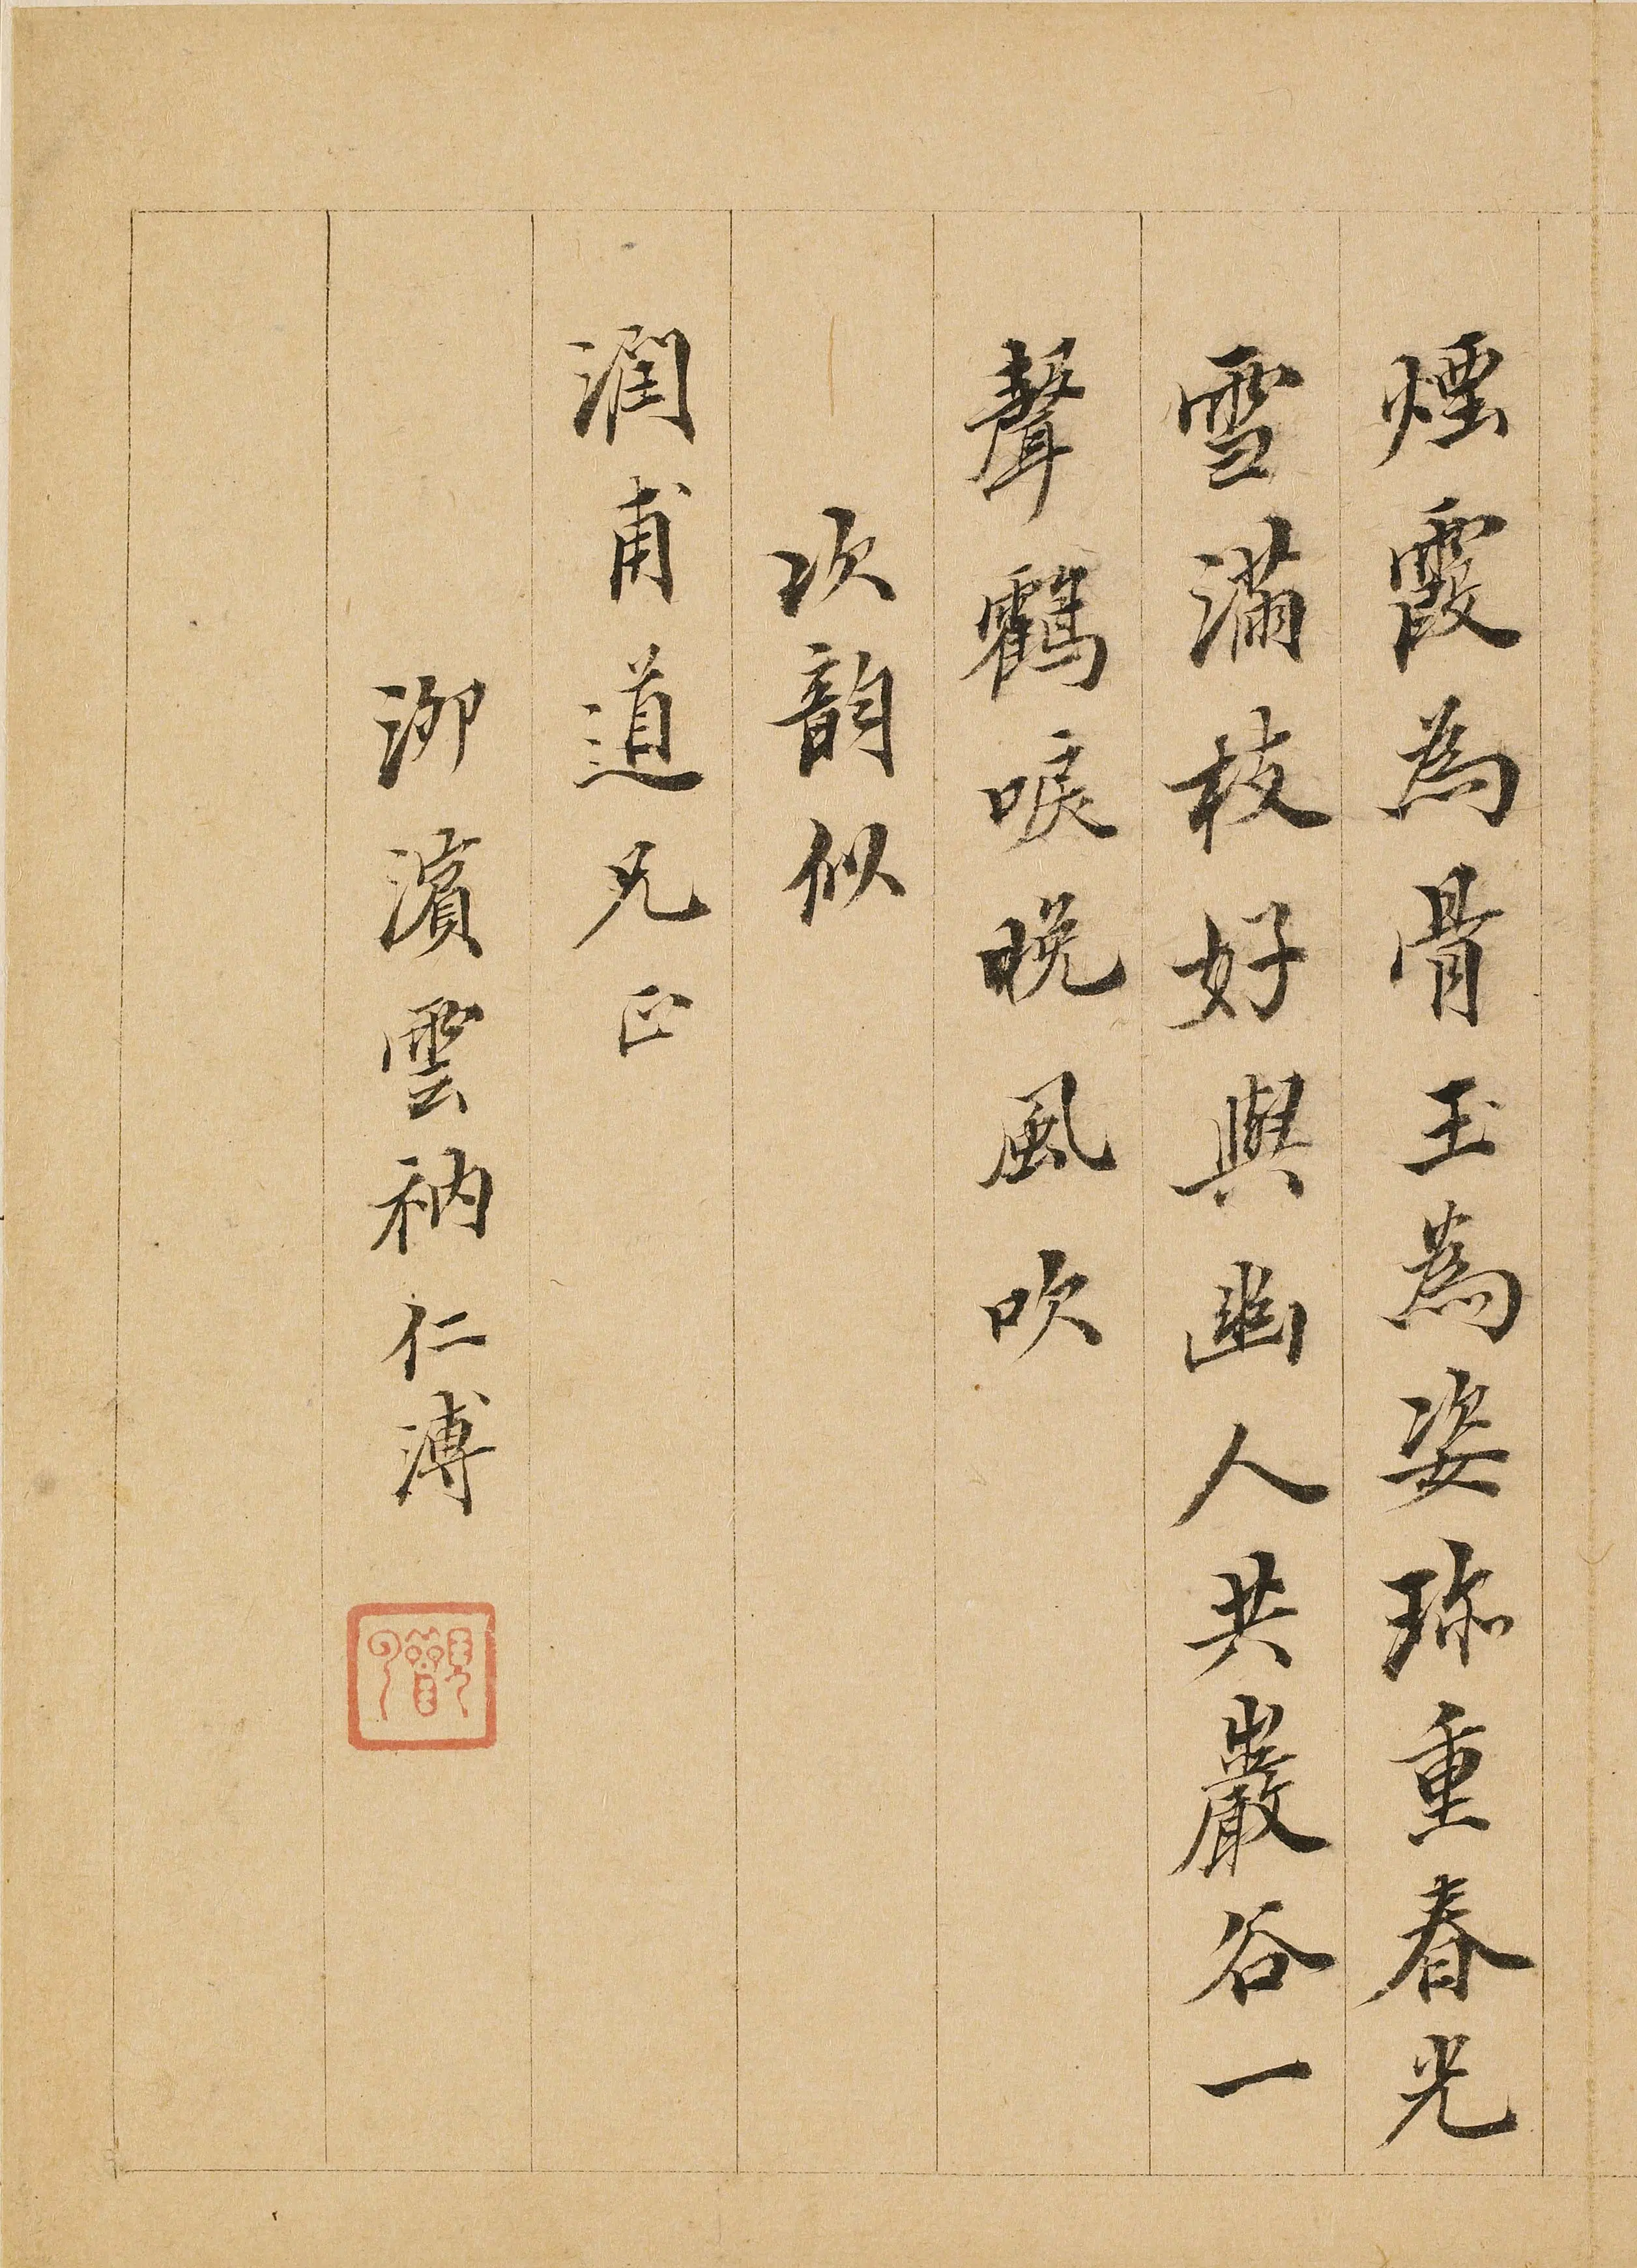 煙霞為骨玉為姿珎重春光
雪滿枝好與幽人共巖谷一
聲鶴唳晚風吹
次韵似
潤甫道兄正
泖濱雲衲仁溥